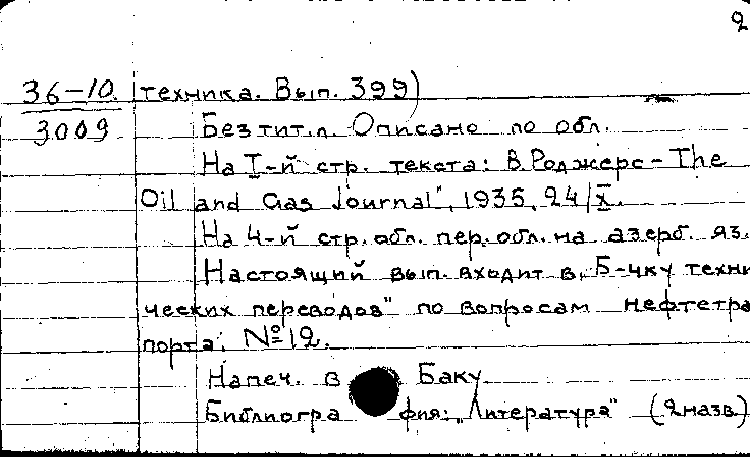 2
36-10
3009
техника. Вып. 399)
Без тит. л. Описано по обл.
На I-й стр. текста: В. Роджерс - The
Oil and Gas Journal", 1935, 24/X.
На 4-й стр. обл. пер. обл. на азерб. яз.
Настоящий вып. входит в „Б-чку техни
ческих переводов" по вопросам нефтетра
порта; № 12.
Напеч. в Баку
Библиография: „Литература" (2 назв.)